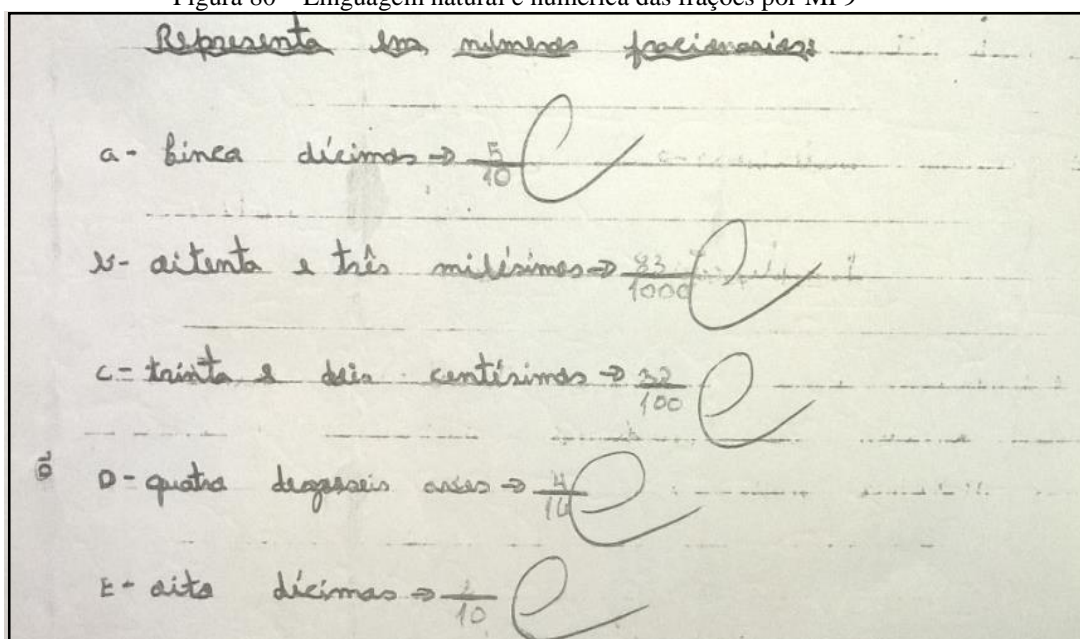 Figura 80 – Linguagem natural e numérica das frações por MP9
Representa em números fracionarios:
a- Cinco décimos → 5/10 C
b- oitenta e três milésimos → 83/1000 C
c- trinta e dois centésimos → 32/100 C
D- quatro dezesseis avos → 4/16 C
E- oito décimos → /10 C